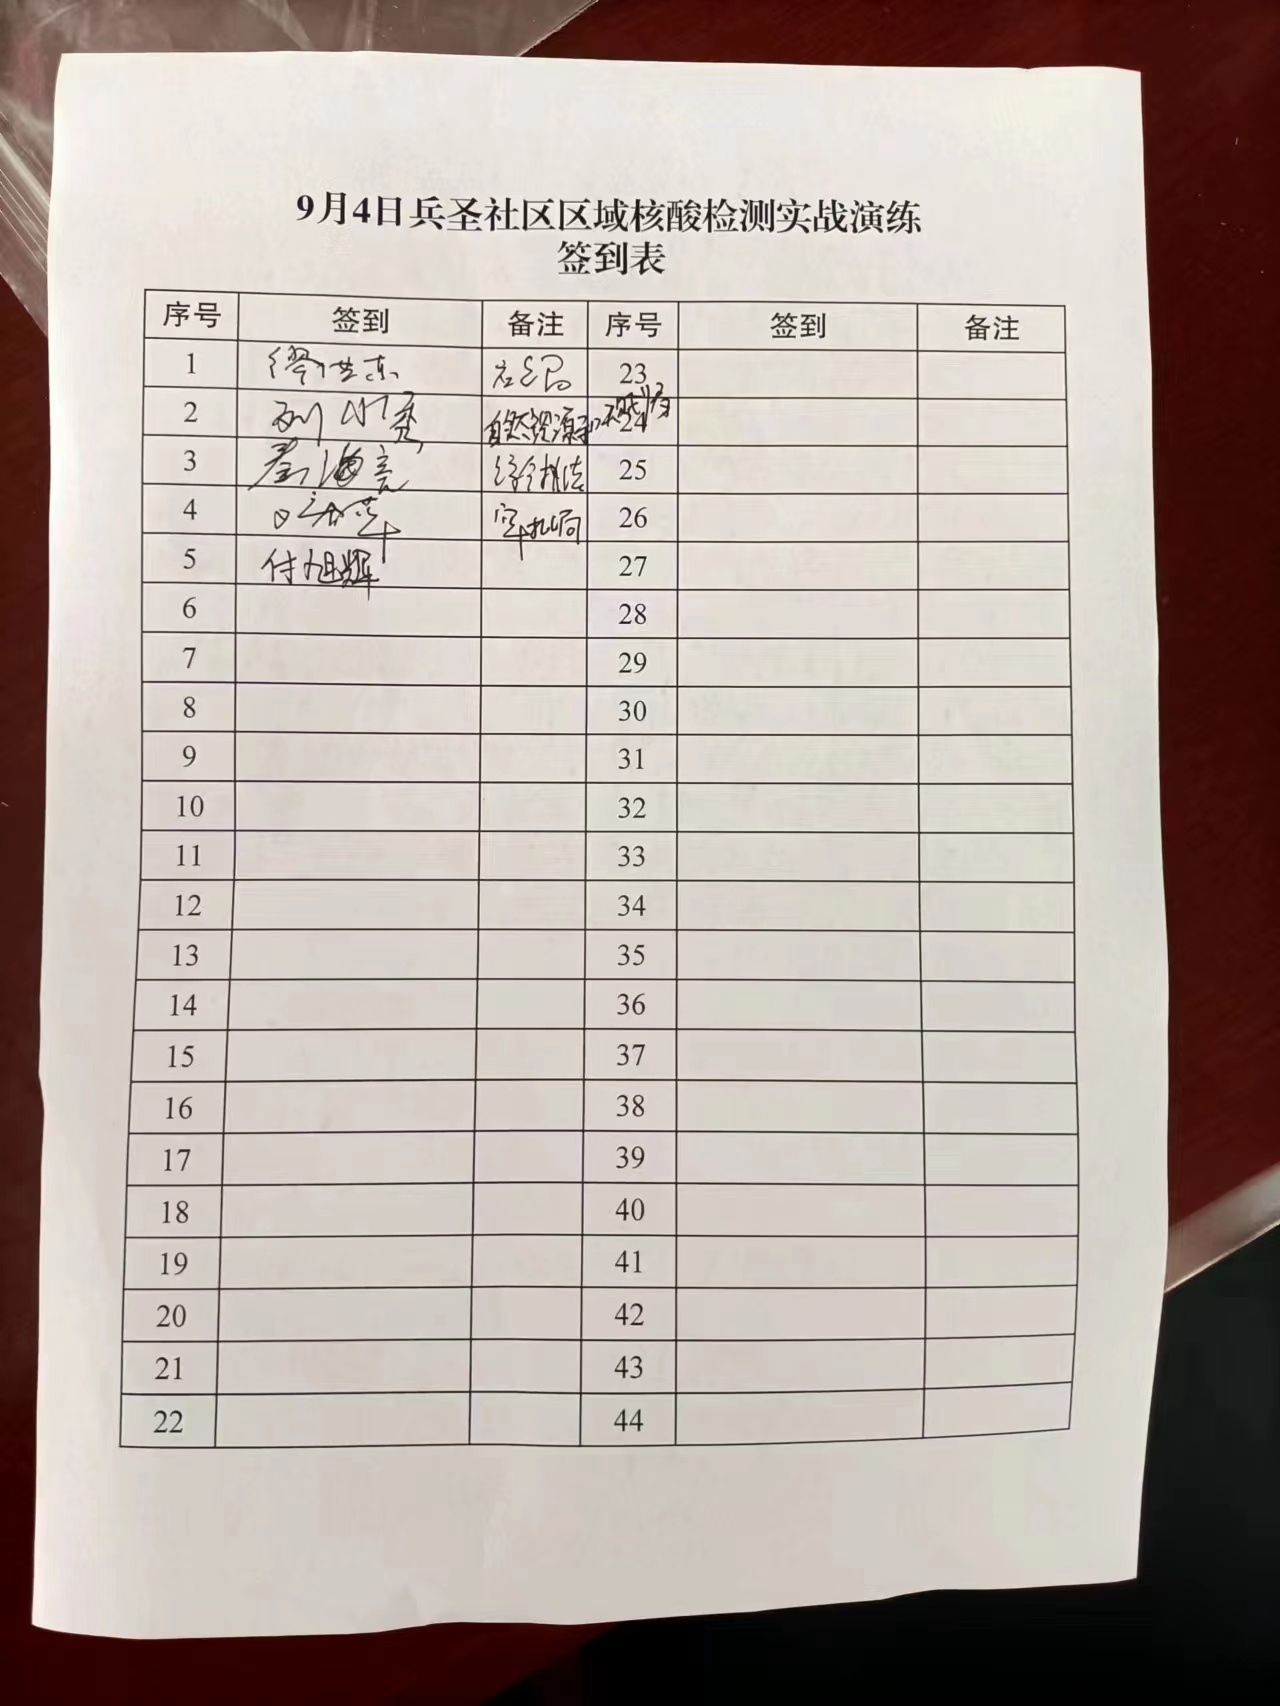 9月4日兵圣社区区域核酸检测实战演练
签到表
序号 签到 备注 序号 签到 备注
1 23
2 刘 秀 自然资源 24
3 秦海亮 综合执法 25
4 26
5 付旭辉 27
6 28
7 29
8 30
9 31
10 32
11 33
12 34
13 35
14 36
15 37
16 38
17 39
18 40
19 41
20 42
21 43
22 44